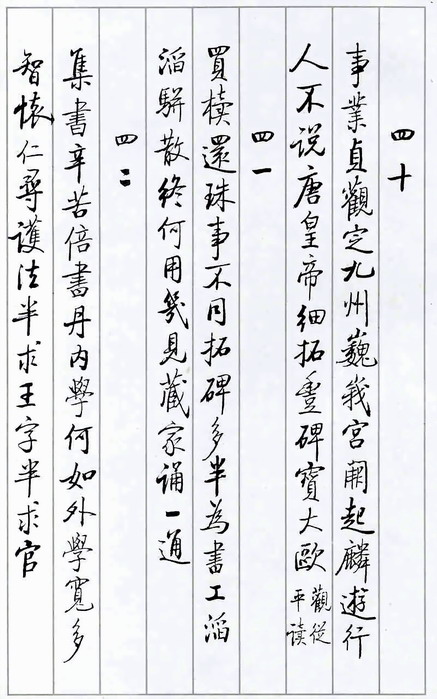 四十
事業貞觀定九州巍峩宮闕起麟遊行
人不说唐皇帝細拓豐碑寶大歐
觀從
平读
四一
買櫝還珠事不同拓碑多半為書工滔
滔駢散終何用幾見藏家誦一通
四二
集書辛苦倍書丹内學何如外學寬多
智懷仁尋護法半求王字半求官